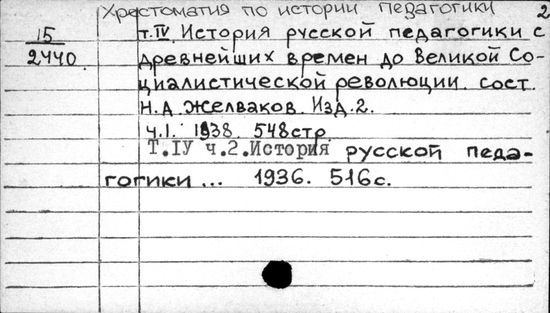 Хрестоматия по истории педагогики 2
15
2440
т.IV. История русской педагогики с
древнейших времен до Великой Со-
циалистической революции. сост.
Н.А. Желваков. Изд.2.
ч.1. 1938. 548стр.
Т.IУ ч.2.История русской педа-
гогики... 1936. 516с.